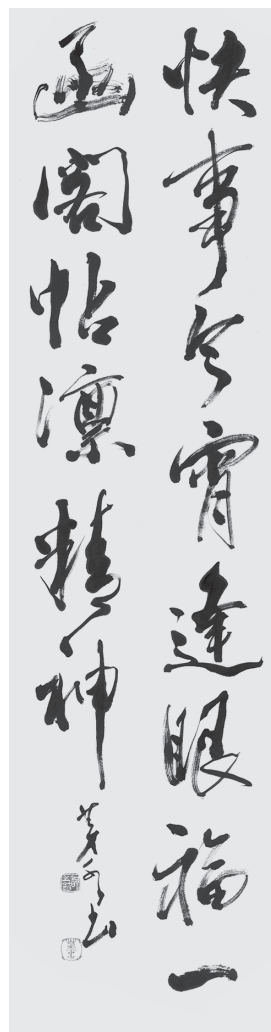 快事今霄逢眼福一
函閣帖凛精神